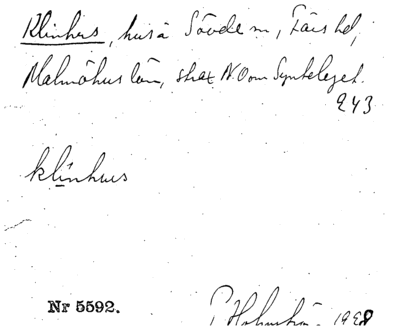 Klinhus, hus å Sövde m, Färs hd,
Malmöhus län, strax N. O om Synteleget.
243
klinhus
Nr 5592. P Holmström. 1928